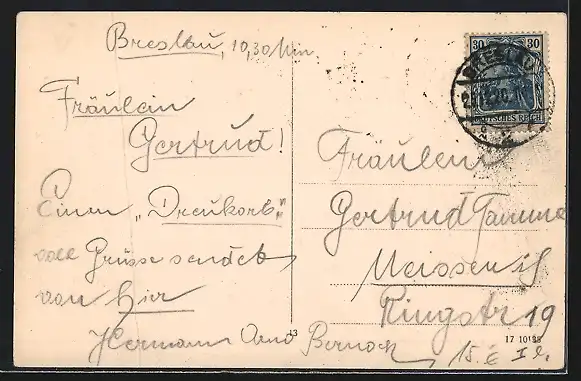 Breslau, 10,30 Min
Fräulein
Gertrud!
Einen „Dreukorb"
voll Grüsse sendet
von hier
Hermann Arno Bernoch
30 30
BRESLAU
DEUTSCHES REICH
Fräulein
Gertrud Tamme
Meissen i/S
Ringstr 19
13
17 10188
15. E I r.